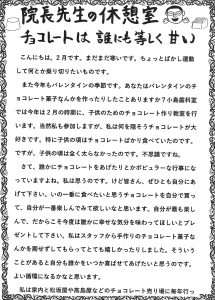 院長先生の休憩室
チョコレートは誰にも等しく甘い
こんにちは。2月です。まだまだ寒いです。ちょっとばかし運動
して何とか乗り切りたいものです。
また今年もバレンタインの季節です。あなたはバレンタインのチ
ョコレート菓子なんかを作ったりしたことありますか？小島歯科室
では今年は2月の時期に、子供のためのチョコレート作り教室を行
います。当然私も参加しますが、私は何を隠そうチョコレートが大
好きです。特に子供の頃はチョコレートばかり食べていたのです。
ですが、子供の頃は全く太らなかったのです。不思議ですね。
さて、誰かにチョコレートをあげたりとかポピュラーな行事にな
っていますよね。私は思うのです。けど皆さん、ぜひとも自分にあ
げて下さい。いの一番に食べたいと思うチョコレートを自分で買っ
て、自分が一番楽しんでみて欲しいなと思います。自分が最も楽し
んで、だからこそ今度は誰かに幸せな気分を味わってほしいとプレ
ゼントして下さい。私はスタッフから手作りのチョコレート菓子な
んかを期せずしてもらってとても嬉しかったりしました。そういう
ことがあると自分も誰かをいつか喜ばせてあげたいと思うのです。
よい循環になるかなと思います。
私は家内と松坂屋や高島屋などのチョコレート売り場に毎年行っ